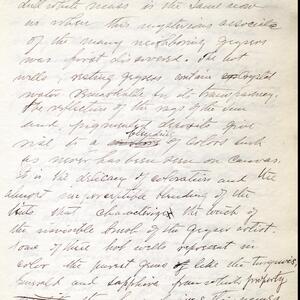 and white mass is the same now
as when this mysterious associate
of the many neighboring geysers
was first discovered. The hot
wells, resting geysers contain
water remarkable in its transparency.
The reflection of the rays of the sun
and pigmented deposits give
blending
rise to a of colors such
as never has been seen on canvas.
It is the delicacy of coloration and the
almost imperceptible blending of the
tints that characterizes the work of
the invisible brush of the Geyser artist.
Some of these hot wells represent in
color the purest gems of like the turquois,
emerald and sapphire from which property